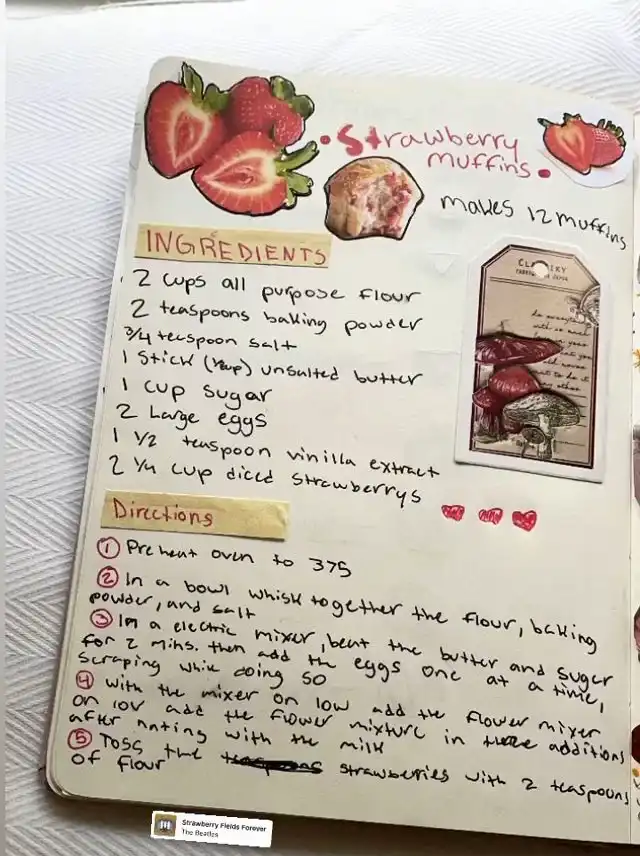 • Strawberry
muffins •
makes 12 muffins
INGREDIENTS
2 cups all purpose flour
2 teaspoons baking powder
3/4 teaspoon salt
1 Stick (1/2cup) unsalted butter
1 cup sugar
2 Large eggs
1 1/2 teaspoon vinilla extract
2 1/4 cup diced strawberrys
Directions
① Preheat oven to 375
② In a bowl whisk together the flour, baking
powder, and salt
③ In a electric mixer, beat the butter and suger
for 2 mins. then add the eggs one at a time,
scraping while doing so
④ with the mixer on low add the flower mixer
on low add the flower mixture in three additions
after with the milk
⑤ Toss the strawberries with 2 teaspouns
of flour
Strawberry Fields Forever
The Beatles